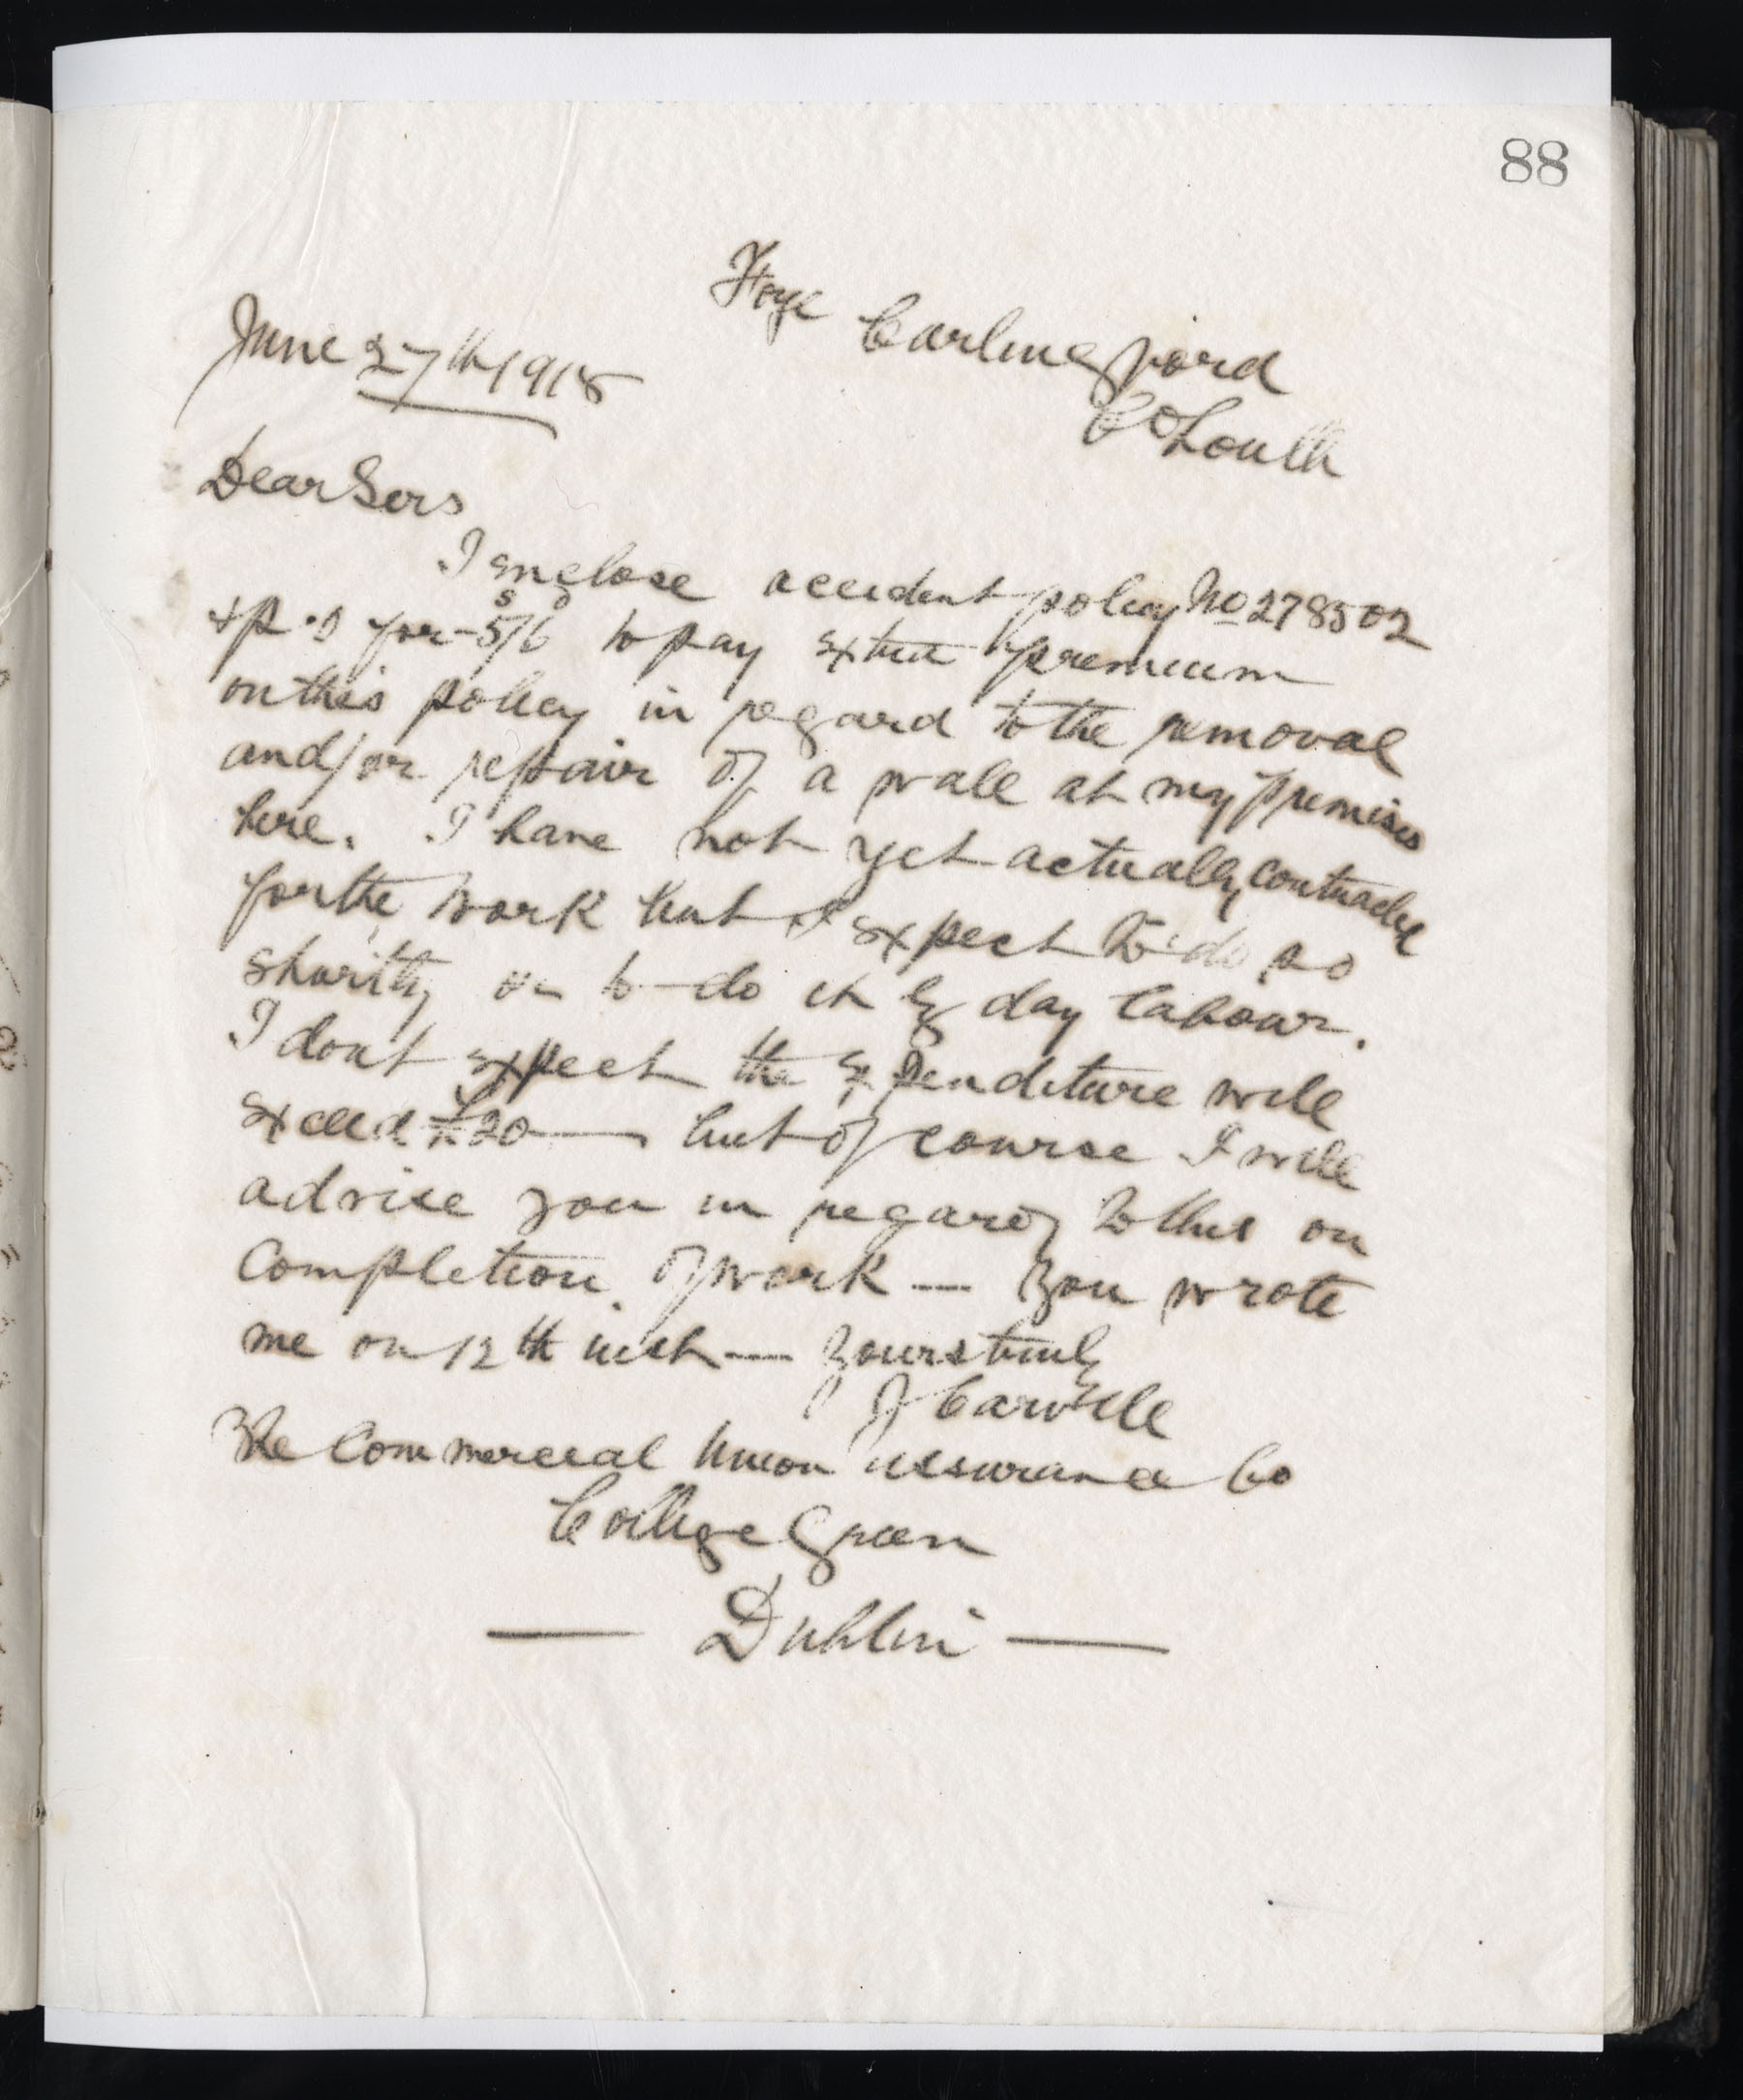 88
Foye
Carlingford
June 27th 1918
Co Louth
Dear Sirs
I enclose accident policy No 278502
+ P.O for 5s/6d to pay extra premium
on this policy in regard to the removal
and/or repair of a wall at my premises
here. I have not yet actually contracted
for the work but I expect to do so
shortly or to do it by day labour.
I dont expect the expenditure will
exceed £20 — but of course I will
advise you in regard to this on
completion of work — You wrote
me on 12th inst — Yours truly
J Carvill
The Commercial Union assurance Co
College Green
— Dublin —